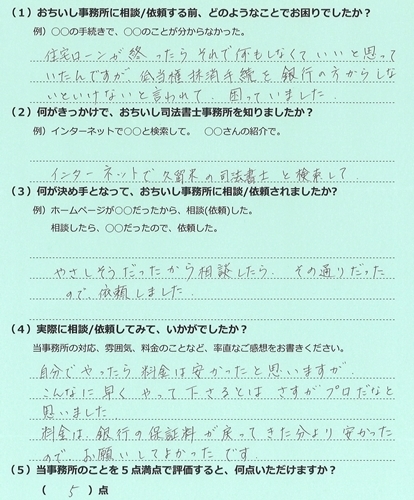 (１) おちいし事務所に相談/依頼する前、どのようなことでお困りでしたか？
例）○○の手続きで、○○のことが分からなかった。
住宅ローンが終ったらそれで何もしなくていいと思って
いたんですが 抵当権抹消手続を銀行の方からしな
いといけないと言われて、困っていました。
(２) 何がきっかけで、おちいし司法書士事務所を知りましたか？
例）インターネットで○○と検索して。 ○○さんの紹介で。
インターネットで久留米の司法書士と検索して
(３) 何が決め手となって、おちいし事務所に相談/依頼されましたか？
例）ホームページが○○だったから、相談(依頼)した。
相談したら、○○だったので、依頼した。
やさしそうだったから相談したら、その通りだった
ので、依頼しました。
(４) 実際に相談/依頼してみて、いかがでしたか？
当事務所の対応、雰囲気、料金のことなど、率直なご感想をお書きください。
自分でやったら料金は安かったと思いますが、
こんなに早くやって下さるとは さすがプロだなと
思いました。
料金は、銀行の保証料が戻ってきた分より安かった
ので、お願いしてよかったです。
(５) 当事務所のことを５点満点で評価すると、何点いただけますか？
（ 5 ）点